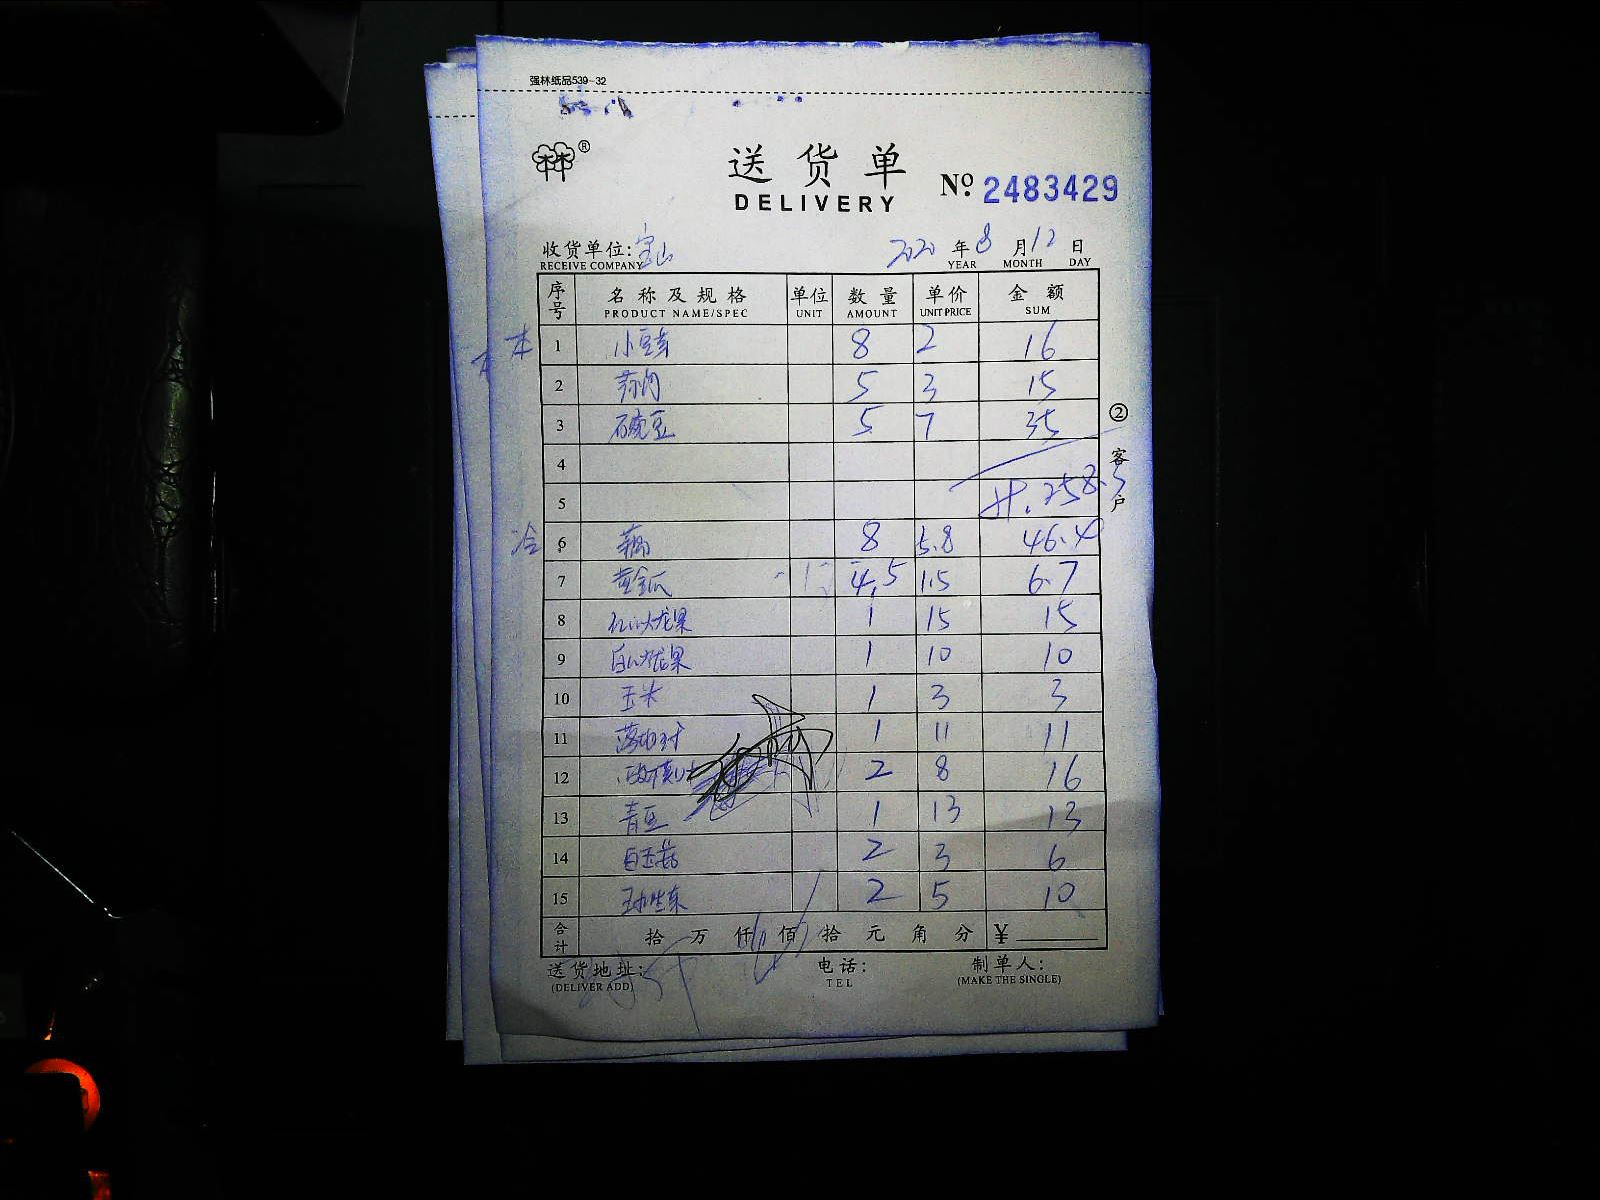 强林纸品539-32
®
送货单
DELIVERY
№ 2483429
收货单位: 宝山 2020 年 8 月 12 日
RECEIVE COMPANY YEAR MONTH DAY
序号 名称及规格 单位 数量 单价 金额
PRODUCT NAME/SPEC UNIT AMOUNT UNIT PRICE SUM
本 1 小豆芽 8 2 16
2 5 3 15
3 豌豆 5 7 35
4
5 共.258.5
冷 6 藕 8 5.8 46.4
7 黄金瓜 4.5 1.5 6.7
8 红心火龙果 1 15 15
9 白心火龙果 1 10 10
10 玉米 1 3 3
11 1 11 11
12 2 8 16
13 青豆 1 13 13
14 白玉菇 2 3 6
15 2 5 10
合计 拾 万 仟 佰 拾 元 角 分 ¥
送货地址: 电话: 制单人:
(DELIVER ADD) TEL (MAKE THE SINGLE)
② 客户